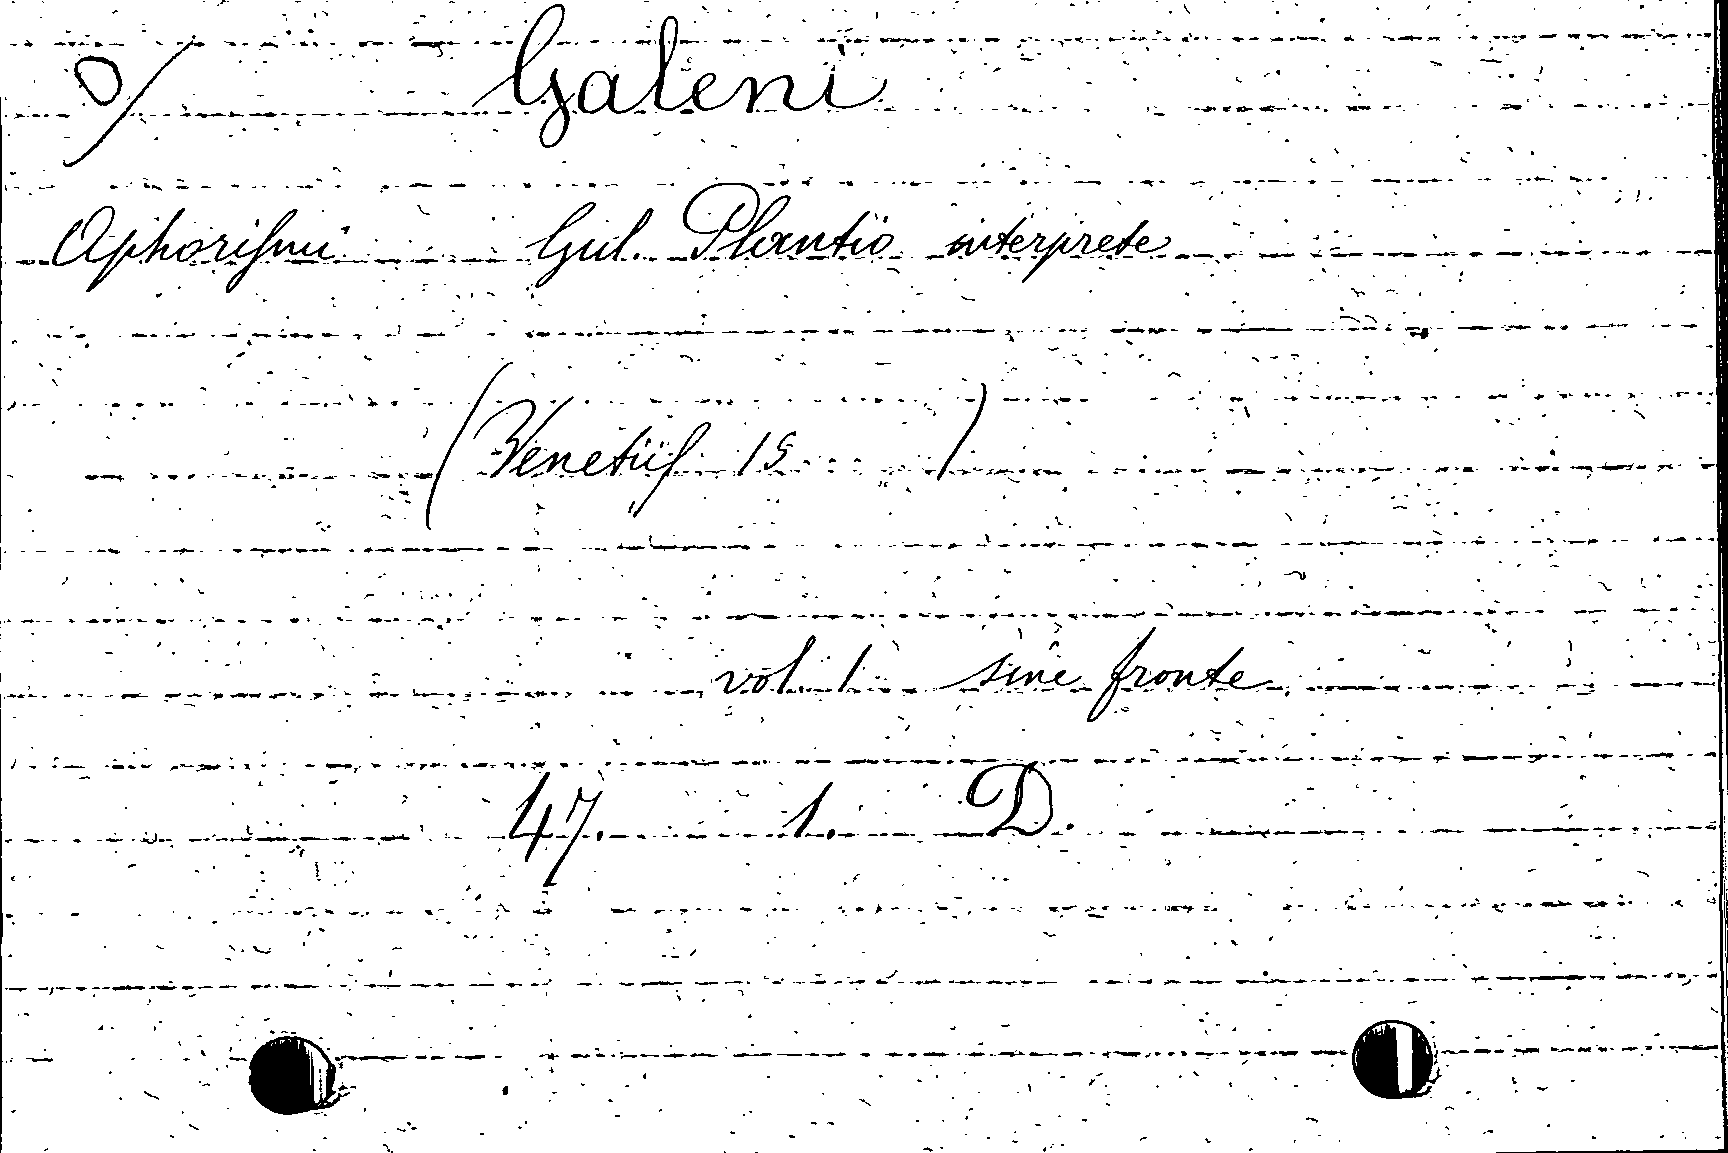 0/ Galeni
Aphorismi Gul. Plantio interprete
(Venetiis 15... )
vol. 1 sine fronte
47. 1. D.